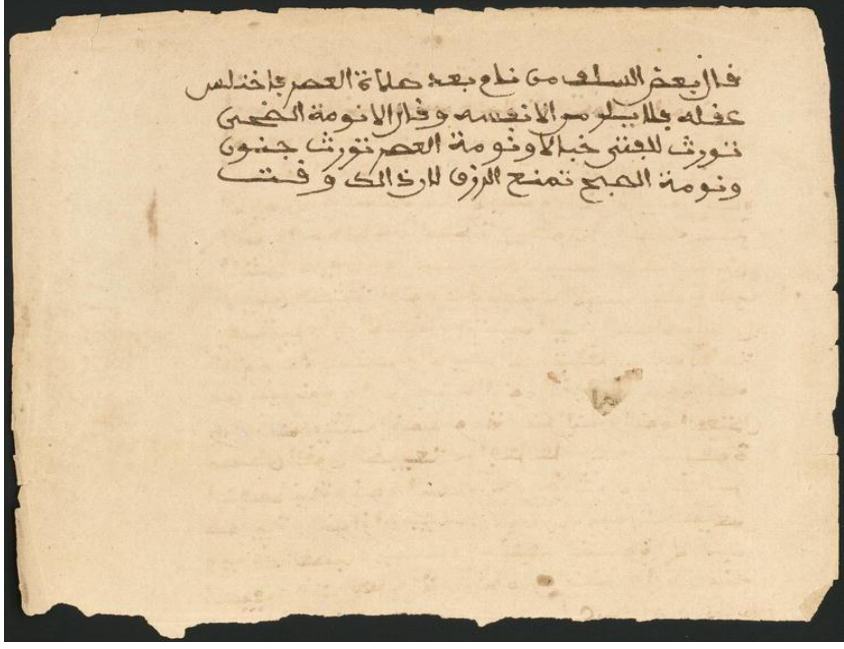 قال بعض السلف من نام بعد صلاة العصر فاختلس
عقله فلا يلومن الا نفسه وقال الا نومة الضحى
تورث للفتى خبالا ونومة العصر تورث جنون
ونومة الصبح تمنع الرزق لان ذالك وقت